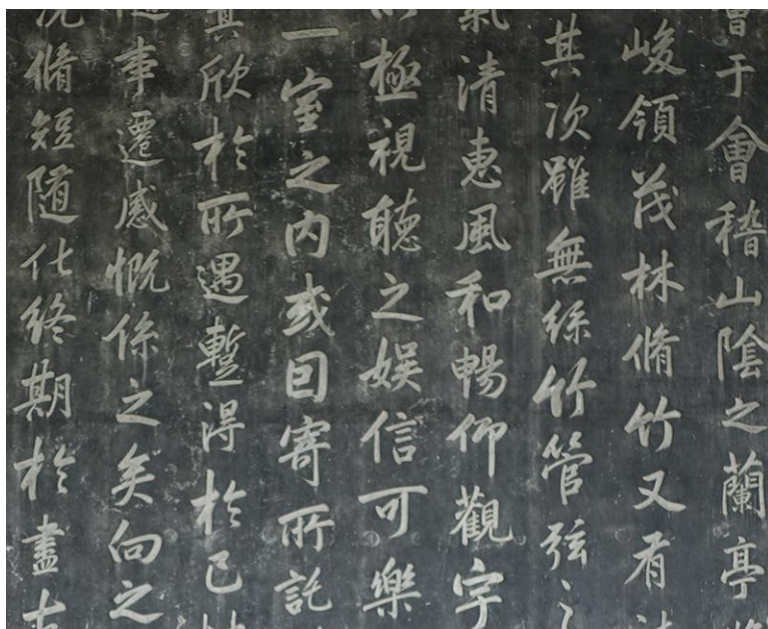 會于會稽山陰之蘭亭
峻領茂林脩竹又有清
其次雖無絲竹管弦之
氣清惠風和暢仰觀宇
極視聽之娛信可樂
一室之內或因寄所託
其欣於所遇暫得於己
隨事遷感慨係之矣向之
況脩短隨化終期於盡古